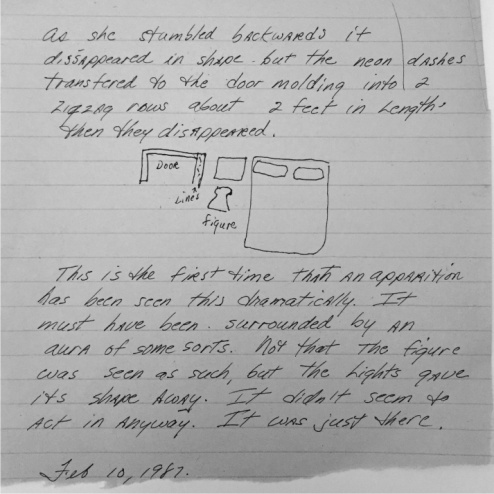 As she stumbled backwards it
dissappeared in shape but the neon dashes
transfered to the door molding into 2
zigzag rows about 2 feet in length,
then they disappeared.
Door
Lines
figure
This is the first time that an apparition
has been seen this dramatically. It
must have been surrounded by an
aura of some sorts. Not that the figure
was seen as such, but the lights gave
its shape away. It didn't seem to
act in anyway. It was just there.
Feb 10, 1987.